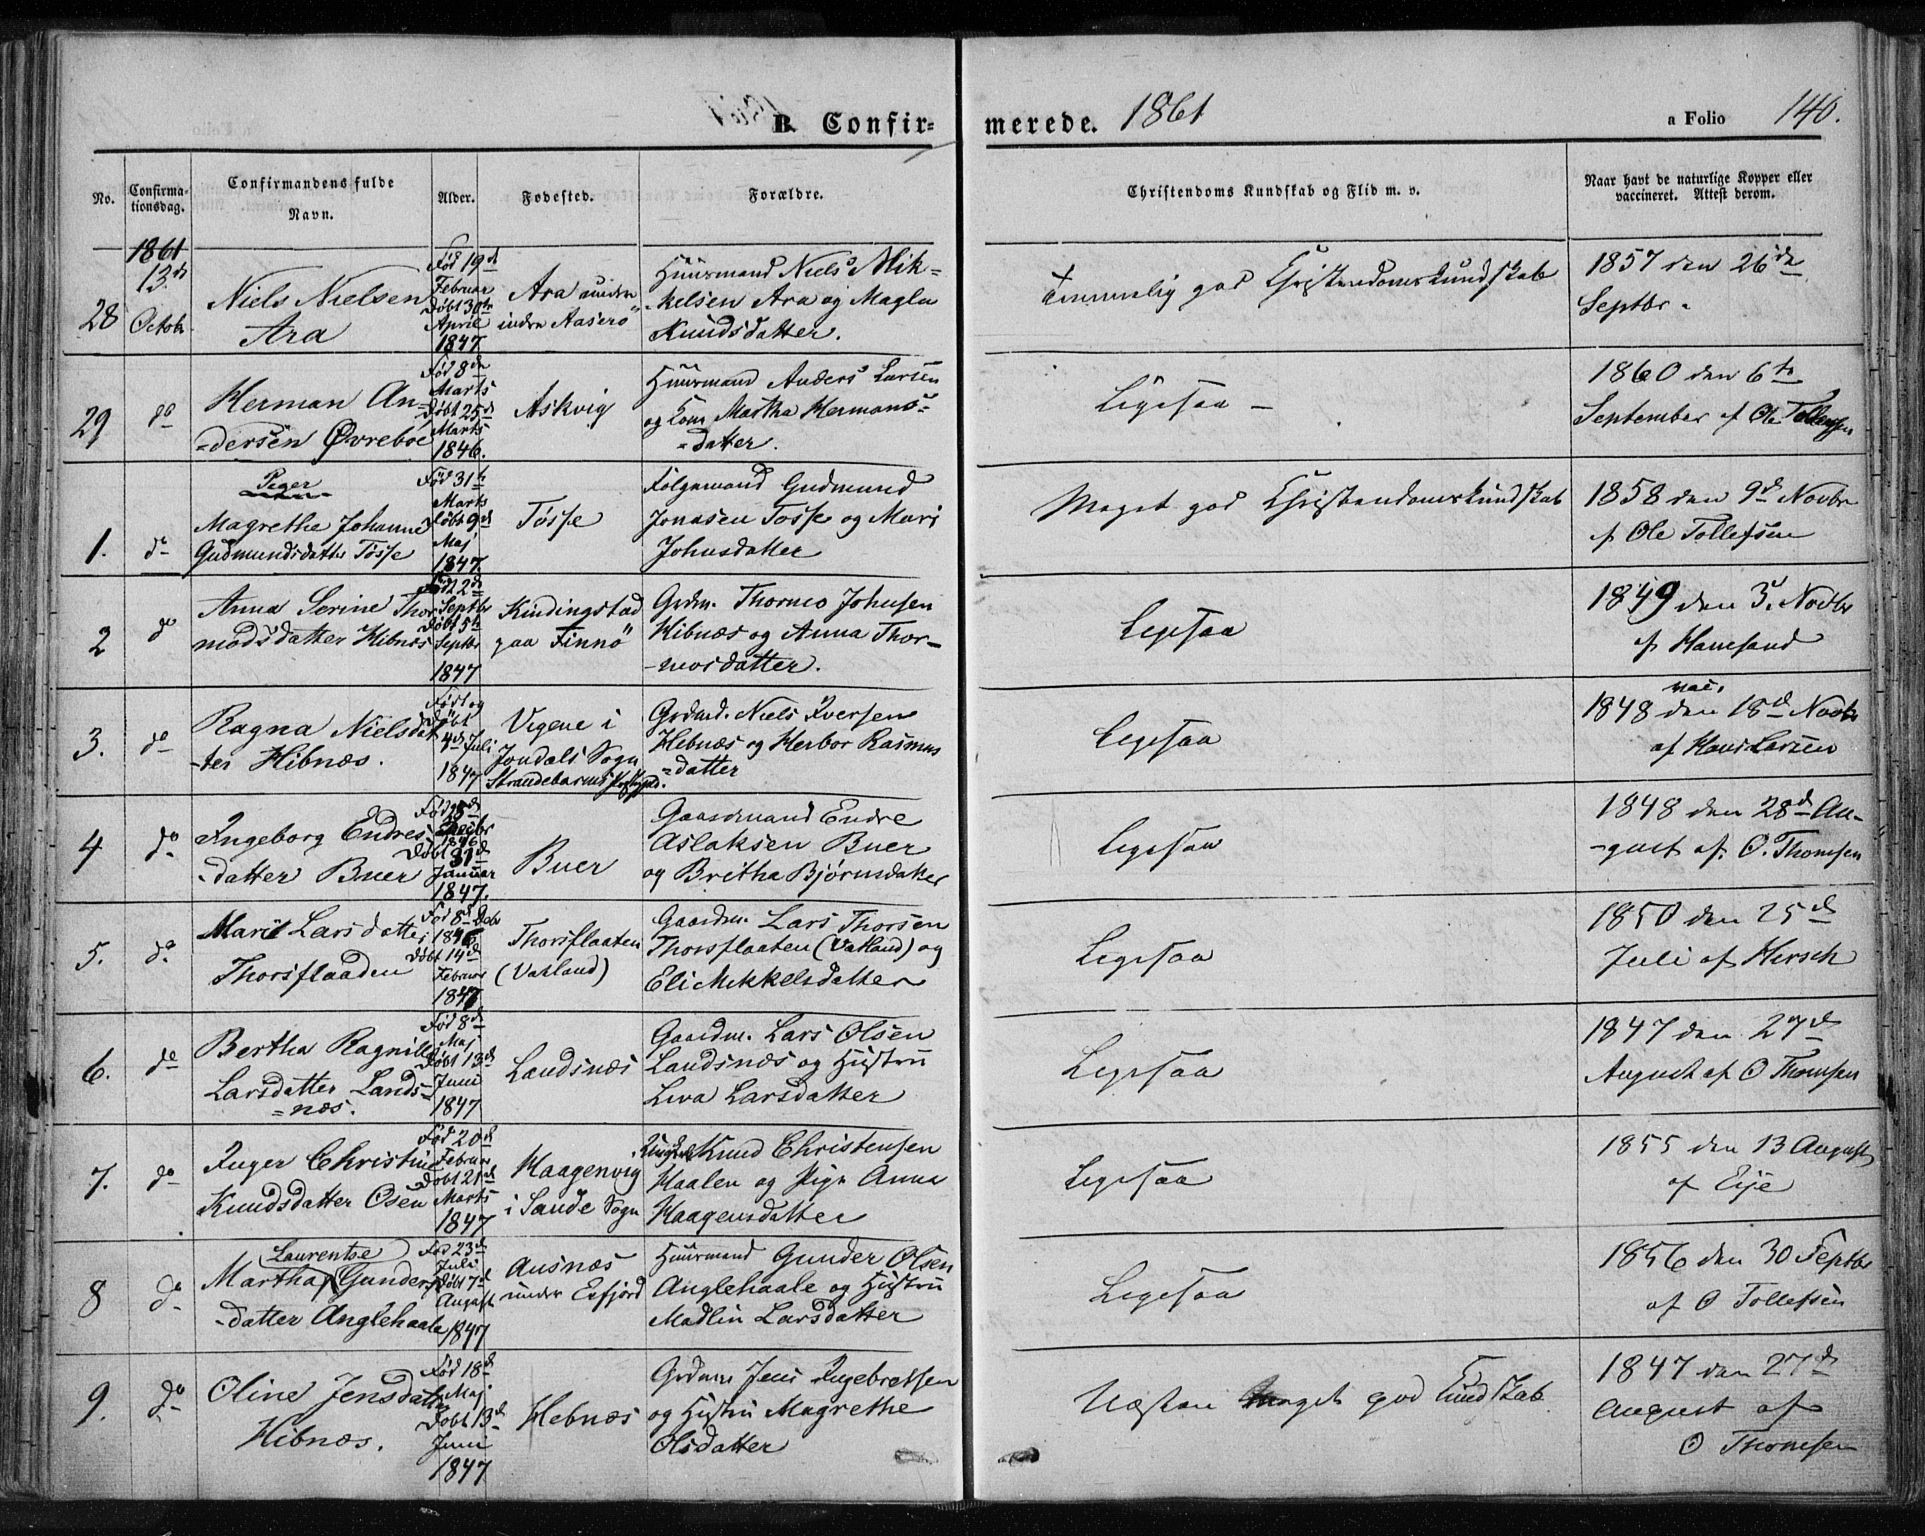 B. Confir-
merede. 1861
a Folio 140.
No.
Confirma-
tionsdag.
Confirmandens fulde
Navn.
Alder.
Fødested.
Forældre.
Christendoms Kundskab og Flid m. v.
Naar havt de naturlige Kopper eller
vaccineret. Attest derom.
1861
28
13de
Octobr
Niels Nielsen
Ara
Fød 19de
Februar
Døbt 30te
April
1847
Ara under
indre Aaserø
Huusmand Niels Mik-
kelsen Ara og Magla
Knudsdatter.
Temmelig god Christendomskundskab
1857 den 26de
Septbr.
29
do
Herman An-
-dersen Øvreboe
Fød 8de
Marts
Døbt 25de
Marts
1846.
Askvig
Huusmand Anders Larsen
og Kone Martha Hermans-
-datter.
Ligesaa -
1860 den 6te
September af Ole Tollefsen
Piger
1.
do
Magrethe Johanne
Gudmundsdatter Tøsse
Fød 31te
Marts
Døbt 9de
Maj
1847.
Tøsse
Følgemand Gudmund
Jonasen Tøsse og Mari
Johnsdatter
Meget god Christendomskundskab
1858 den 9de Novbr
af Ole Tollefsen
2
do
Anna Serine Thor
modsdatter Hibnæs
Fød 2de
Septbr
Døbt 5te
Septbr
1847
Kindingstad
paa Finnø
Grdm. Thormo Johnsen
Hibnæs og Anna Thor-
-mosdatter.
Ligesaa
1849 den 3. Novbr
af Hanesand
3.
do
Ragna Nielsdat
-ter Hibnæs.
Født og
døbt
4de Juli
1847
Vigene i
Jondals Sogn
Strandebarms Præstegjeld.
Grdmd. Niels Iversen
Hebnæs og Herbor Rasmus
-datter
Ligesaa
1848 vac. den 18de Novbr
af Hans Larsen
4
do
Ingeborg Endres
-datter Buer
Fød 25de
Decbr
1846
Døbt 31de
Januar
1847.
Buer
Gaardmand Endre
Aslaksen Buer
og Britha Bjørnsdatter
Ligesaa
1848 den 28de Au-
-gust af O. Thomsen
5.
do
Mari Larsdatter
Thorsflaaden
Fød 8de Decbr
1846
Døbt 14de
Februar
1847
Thorsflaaten
(Vatland)
Gaardm. Lars Thorsen
Thorsflaaten (Vatland) og
Eli Mikkelsdatter
Ligesaa
1850 den 25de
Juli af Hirsch
6.
do
Bertha Ragnille
Larsdatter Lands-
=næs.
Fød 8de
Maj
Døbt 13de
Juni
1847
Landsnæs
Gaardm. Lars Olsen
Landsnæs og Hustru
Liva Larsdatter
Ligesaa
1847 den 27de
August af O Thomsen
7.
do
Inger Christine
Knudsdatter Osen
Fød 20de
Februar
Døbt 21de
Marts
1847
Haagenvig
i Sande Sogn
Ungkarl Knud Christensen
Haalen og Pige Anna
Haagensdatter
Ligesaa
1855 den 13 August
af Eije
8
do
Laurentse
Martha Gunders
-datter Anglehaale
Fød 23de
Juli
Døbt 7de
August
1847
Ausnæs
under Esfjord
Huusmand Gunder Olsen
Anglehaale og Hustru
Madlin Larsdatter
Ligesaa
1856 den 30 Septbr
af O Tollefsen
9.
do
Oline Jensdatter
Hibnæs.
Fød 18de
Maj
Døbt 13de
Juni
1847
Hebnæs
Grdmn Jens Ingebretsen
og Hustru Magrethe
Olsdatter
Næsten meget god Kundskab
1847 den 27de
August af
O Thomsen